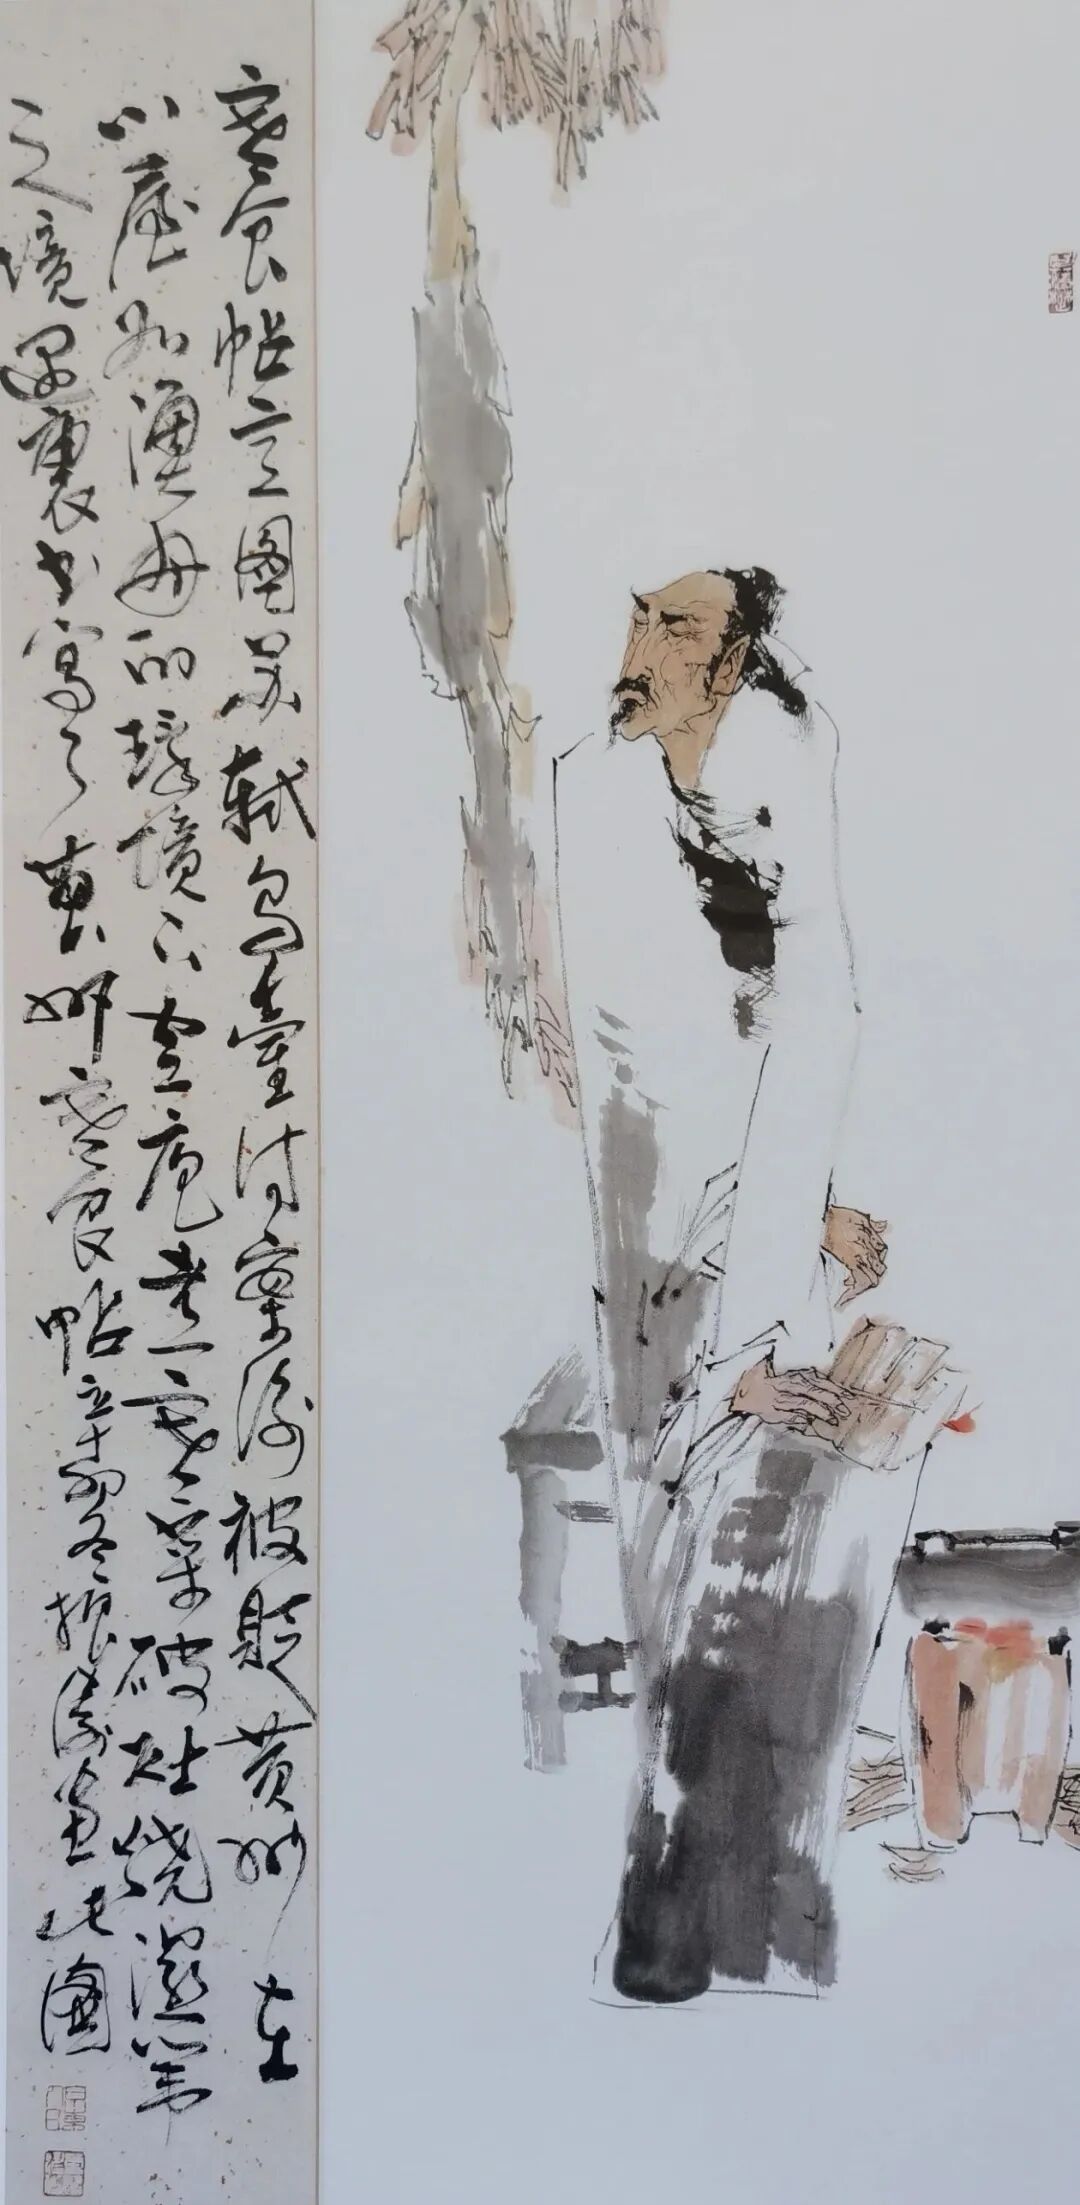 寒食帖之图苏轼乌臺诗案後被贬黄州在
小屋如渔舟的环境下空庖煮寒菜破灶烧湿苇
之境遇裏书写了黄州寒食帖辛卯冬振画此图